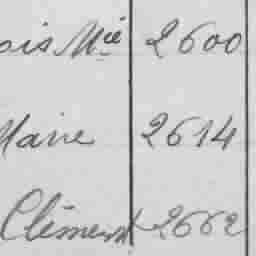 ois Mie 2600
Marie 2614
Clément 2662